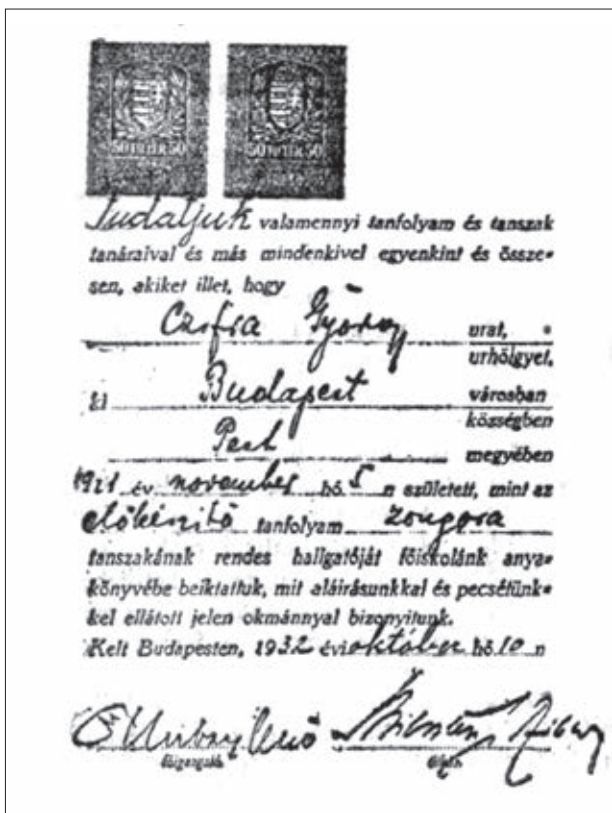 Tudatjuk valamennyi tanfolyam és tanszak
tanáraival és más mindenkivel egyenkint és össze-
sen, akiket illet, hogy
Cziffra György urat,
urhölgyet,
ki Budapest városban
községben
Pest megyében
1921 év november hó 5 n született, mint az
előkészítő tanfolyam zongora
tanszakának rendes hallgatóját főiskolánk anya-
könyvébe beiktattuk, mit aláirásunkkal és pecsétünk-
kel ellátott jelen okmánnyal bizonyitunk.
Kelt Budapesten, 1932 évi október hó 10 n